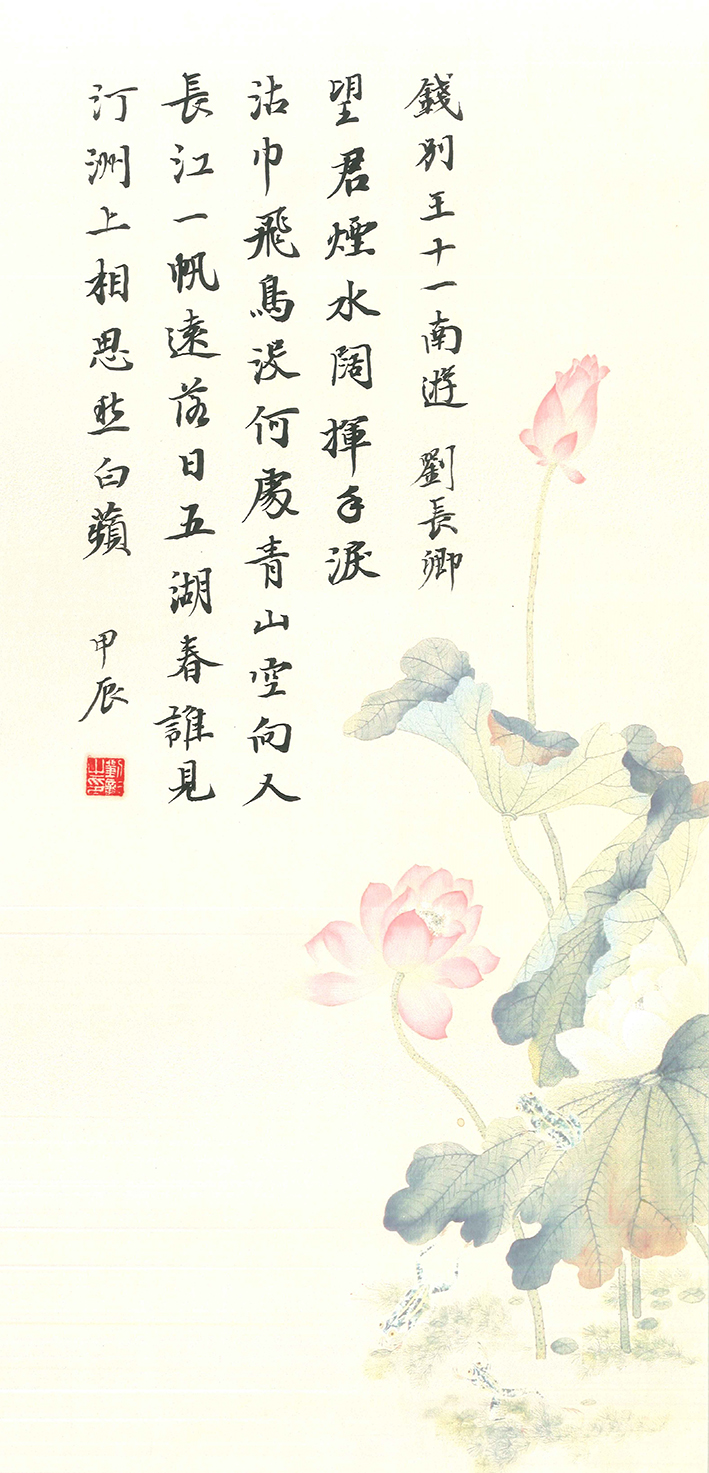 錢別王十一南遊 劉長卿
望君煙水闊揮手淚
沾巾飛鳥沒何處青山空向人
長江一帆遠落日五湖春誰見
汀洲上相思愁白蘋 甲辰